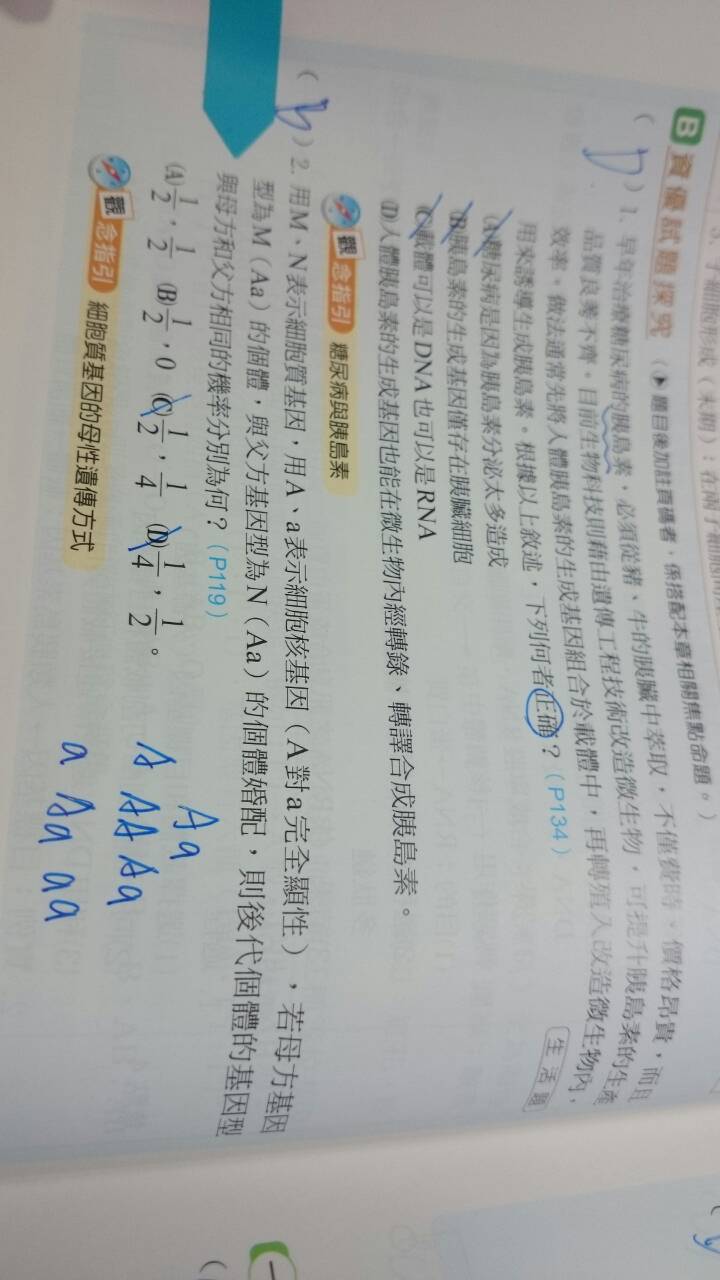 3. 子細胞形成（末期）：在兩子細胞
B 資優試題探究 （▶題目後加註頁碼者，係搭配本章相關焦點命題。）
( D ) 1. 早年治療糖尿病的胰島素，必須從豬、牛的胰臟中萃取，不僅費時、價格昂貴，而且
品質良莠不齊。目前生物科技則藉由遺傳工程技術改造微生物，可提升胰島素的生產
效率。做法通常先將人體胰島素的生成基因組合於載體中，再轉殖入改造微生物內，
用來誘導生成胰島素。根據以上敘述，下列何者正確？（P134） 生活題
(A)糖尿病是因為胰島素分泌太多造成
(B)胰島素的生成基因僅存在胰臟細胞
(C)載體可以是DNA也可以是RNA
(D)人體胰島素的生成基因也能在微生物內經轉錄、轉譯合成胰島素。
觀念指引 糖尿病與胰島素
( b ) 2. 用M、N表示細胞質基因，用A、a表示細胞核基因（A對a完全顯性），若母方基因
型為M（Aa）的個體，與父方基因型為N（Aa）的個體婚配，則後代個體的基因型
與母方和父方相同的機率分別為何？（P119）
(A)1/2，1/2 (B)1/2，0 (C)1/2，1/4 (D)1/4，1/2。
觀念指引 細胞質基因的母性遺傳方式
A a
A AA Aa
a Aa aa